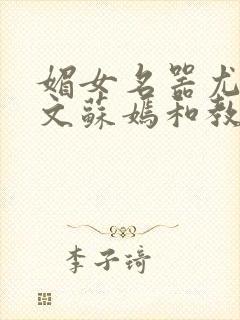 媚女名器尤
文蘇媽和教
李子琦